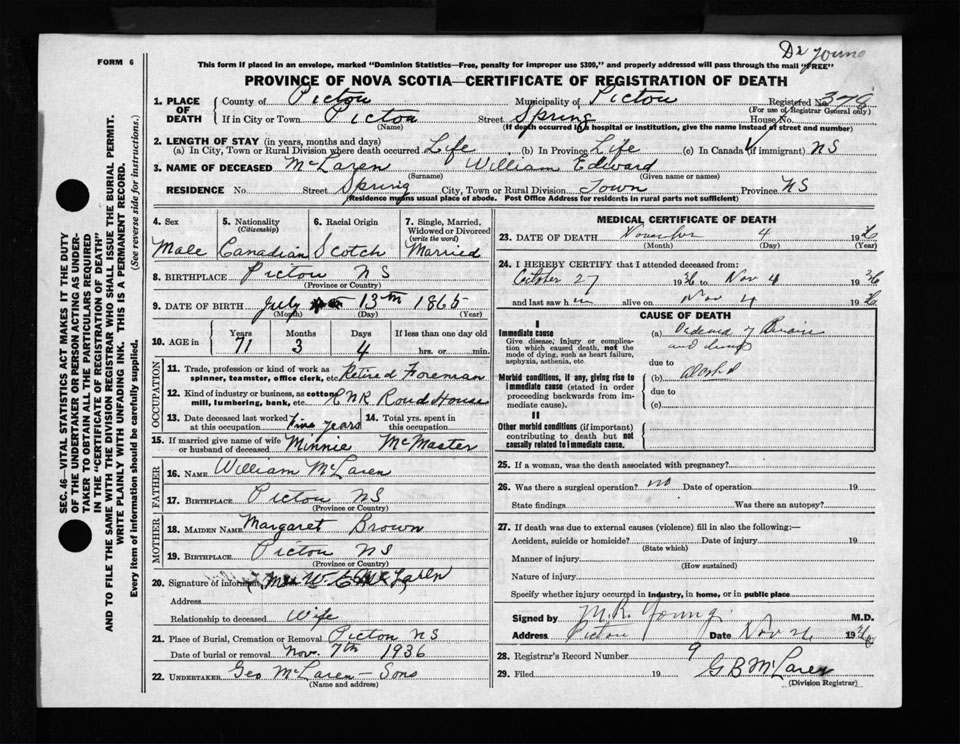 Dr Young
FORM 6
This form if placed in an envelope, marked "Dominion Statistics—Free, penalty for improper use $300," and properly addressed will pass through the mail "FREE"
PROVINCE OF NOVA SCOTIA—CERTIFICATE OF REGISTRATION OF DEATH
1. PLACE OF DEATH County of Pictou Municipality of Pictou Registered No. 376
(For use of Registrar General only)
If in City or Town Pictou Street Spring House No.
(Name) (If death occurred in a hospital or institution, give the name instead of street and number)
2. LENGTH OF STAY (in years, months and days)
(a) In City, Town or Rural Division where death occurred Life (b) In Province Life (c) In Canada (if immigrant) NS
3. NAME OF DECEASED McLaren William Edward
(Surname) (Given name or names)
RESIDENCE No. Street Spring City, Town or Rural Division Town Province NS
(Residence means usual place of abode. Post Office Address for residents in rural parts not sufficient)
4. Sex 5. Nationality (Citizenship) 6. Racial Origin 7. Single, Married, Widowed or Divorced (write the word)
Male Canadian Scotch Married
8. BIRTHPLACE Pictou NS
(Province or Country)
9. DATE OF BIRTH July 13th 1865
(Month) (Day) (Year)
10. AGE in Years Months Days If less than one day old
71 3 4 hrs. or min.
OCCUPATION
11. Trade, profession or kind of work as spinner, teamster, office clerk, etc. Retired Foreman
12. Kind of industry or business, as cotton mill, lumbering, bank, etc. CNR Roud House
13. Date deceased last worked at this occupation Five years 14. Total yrs. spent in this occupation
15. If married give name of wife or husband of deceased Minnie McMaster
FATHER
16. NAME William McLaren
17. BIRTHPLACE Pictou NS
(Province or Country)
MOTHER
18. MAIDEN NAME Margaret Brown
19. BIRTHPLACE Pictou NS
(Province or Country)
20. Signature of informant Mrs W E McLaren
Address
Relationship to deceased Wife
21. Place of Burial, Cremation or Removal Pictou NS
Date of burial or removal Nov. 7th 1936
22. UNDERTAKER Geo McLaren – Sons
(Name and address)
MEDICAL CERTIFICATE OF DEATH
23. DATE OF DEATH November 4 1936
(Month) (Day) (Year)
24. I HEREBY CERTIFY that I attended deceased from:
October 27 1936 to Nov 4 1936
and last saw him alive on Nov 4 1936
CAUSE OF DEATH
I
Immediate cause (a)
Give disease, injury or complication which caused death, not the mode of dying, such as heart failure, asphyxia, asthenia, etc.
due to
Morbid conditions, if any, giving rise to immediate cause (stated in order proceeding backwards from immediate cause). (b) alcohol
due to
(c)
II
Other morbid conditions (if important) contributing to death but not causally related to immediate cause.
25. If a woman, was the death associated with pregnancy?
26. Was there a surgical operation? no Date of operation 19
State findings Was there an autopsy?
27. If death was due to external causes (violence) fill in also the following:—
Accident, suicide or homicide? Date of injury 19
(State which)
Manner of injury
(How sustained)
Nature of injury
Specify whether injury occurred in industry, in home, or in public place
Signed by M.R. Young M.D.
Address Pictou Date Nov 26 1936
28. Registrar's Record Number 9
29. Filed 19 G B McLaren
(Division Registrar)
SEC. 46—VITAL STATISTICS ACT MAKES IT THE DUTY
OF THE UNDERTAKER OR PERSON ACTING AS UNDER-
TAKER TO OBTAIN ALL THE PARTICULARS REQUIRED
IN THE "CERTIFICATE OF REGISTRATION OF DEATH"
AND TO FILE THE SAME WITH THE DIVISION REGISTRAR WHO SHALL ISSUE THE BURIAL PERMIT.
WRITE PLAINLY WITH UNFADING INK. THIS IS A PERMANENT RECORD.
Every item of information should be carefully supplied. (See reverse side for instructions.)